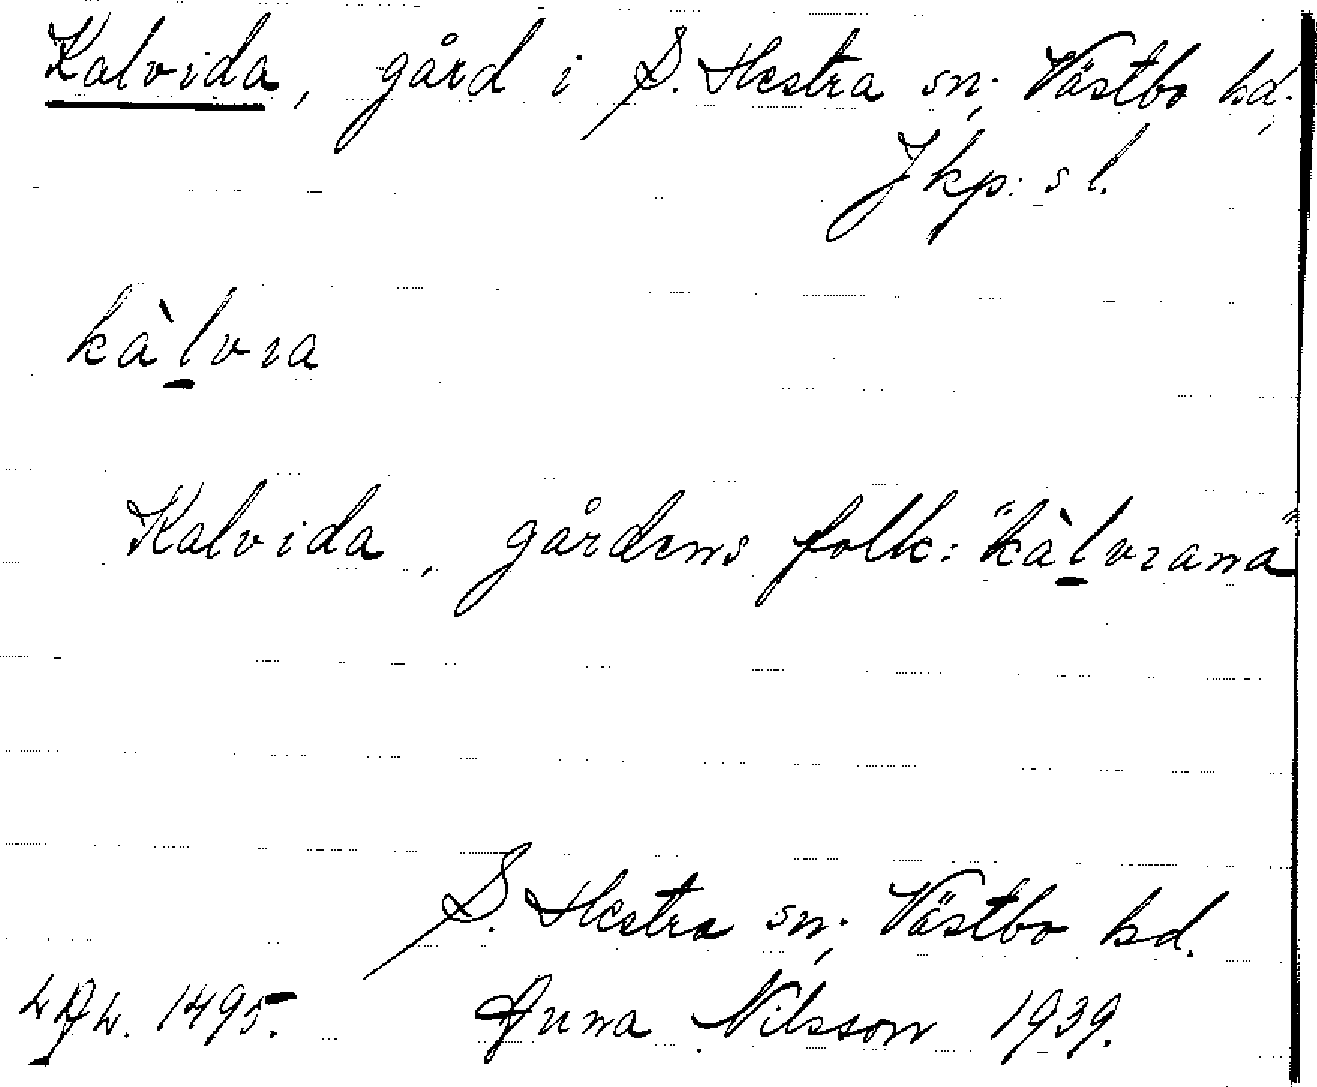 Kalvida, gård i S. Hestra sn; Västbo hd;
Jkp: s l.
kàl̲vıa
Kalvida, gårdens folk: "kàl̲vıana"
S. Hestra sn; Västbo hd.
1495. Gunna Nilsson 1939.